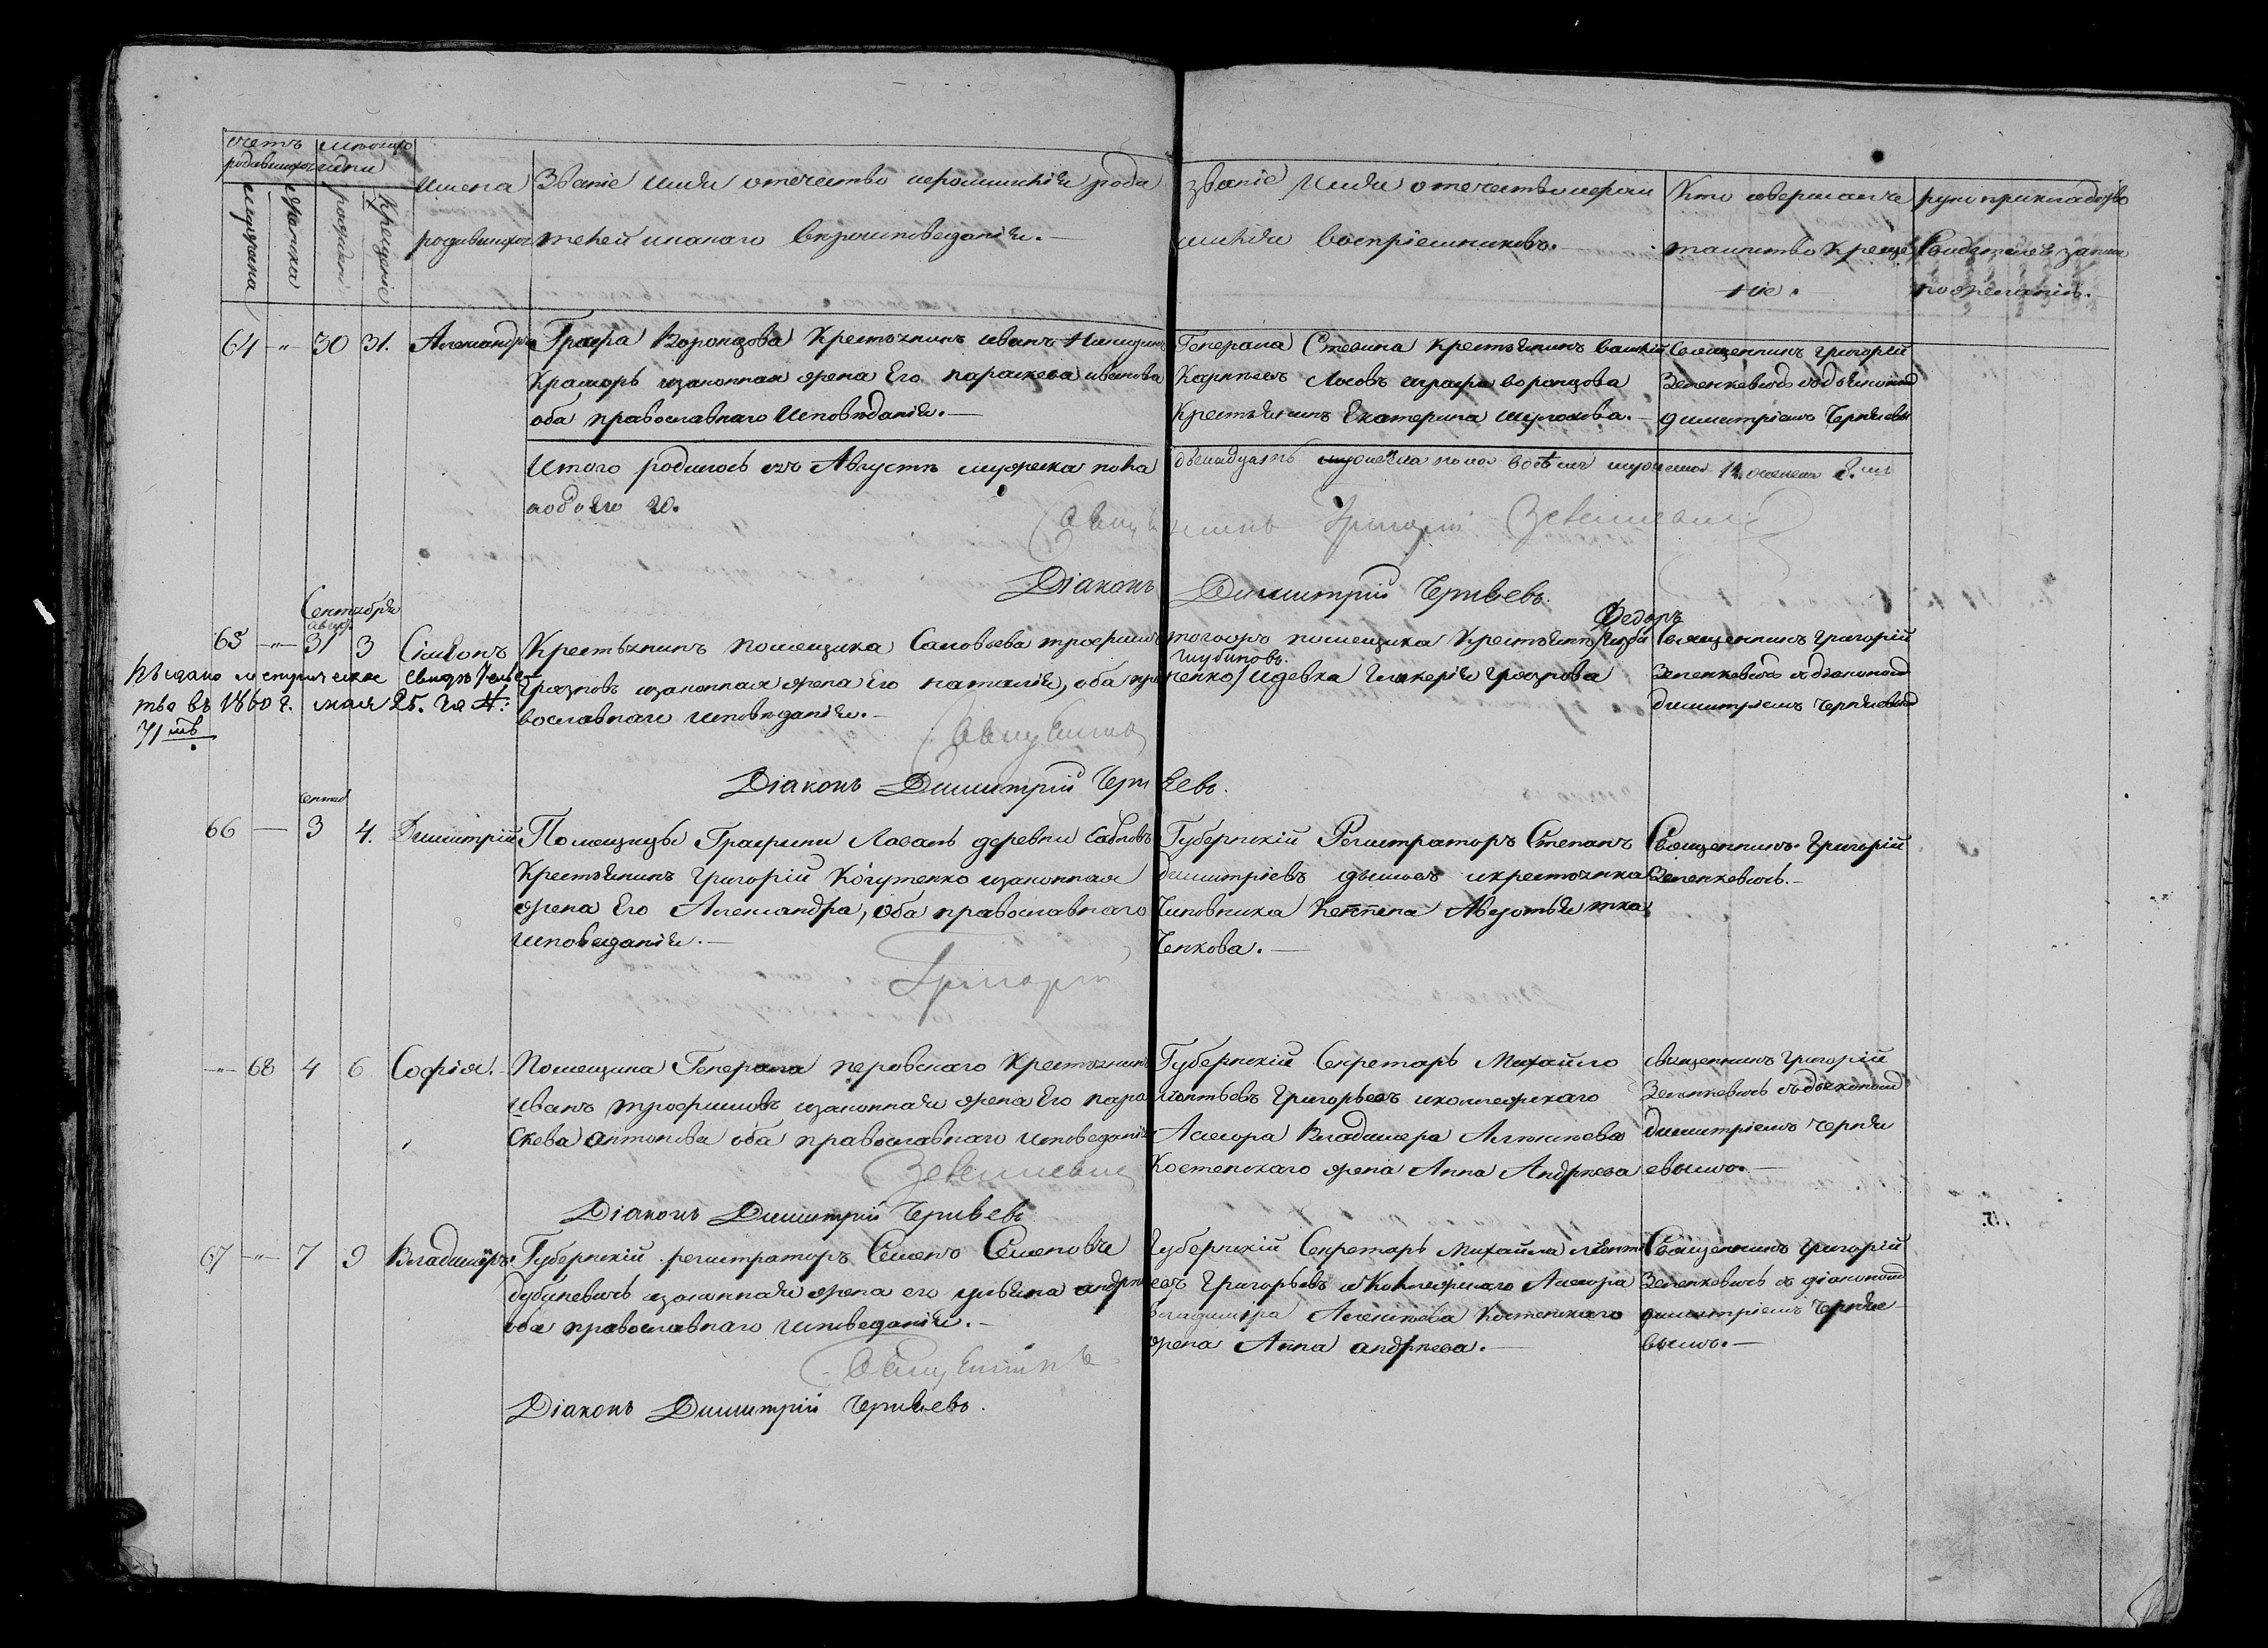 счетъ родившихся
мѣсяцъ и дни
мужеска
женска
рожденія
крещенія
имена родившихся
Званіе имя отечество и фамилія роди
телей и какаго вѣроисповеданія.
званіе имя отечество и фами
лія воспріемниковъ.
Кто совершалъ
таинство креще
ніе.
рукоприкладство
свидетелей записи
по желанію.
64 -"- 30 31. Александръ
Графа Воронцова Крестьянинъ иванъ
и законная жена Его параскева иванова
оба православнаго Исповѣданія.
Генерала Крестьянинъ
Лосовъ и графа воронцова
Крестьянинъ Екатерина
Священникъ григорій
Зеленкевичъ съ дьякономъ
димитріемъ
Итого родилось въ Августѣ мужеска пола
двенадцать женска пола восемъ
обоего 20.
Священникъ Григорій
Діаконъ Димитрій
Сентября
авгус.
65 -"- 31 3 Симеонъ
Крестьянинъ помещика Соловьева трофимъ
Грязновъ и законная жена Его наталія, оба пра
вославнаго исповѣданія.
Федоръ
тогожъ помещика Крестьянинъ
глубиновъ.
и девка гликерія грязнова
Священникъ григорій
Зеленкевичъ съ діакономъ
димитріемъ
метрическое свидѣтель
тво въ 1860 г. мая 25. за №:
71 мъ
Священникъ
Діаконъ Димитрій
сентяб
66 — 3 4. Димитрій
Помещицы Графини Лаваль деревни
Крестьянинъ Григорій Когутенко и законная
жена Его Александра, оба православнаго
исповеданія.
Губернскій Регистраторъ Степанъ
димитріевъ и крестьянка
Чиновника Кеппена Авдотья тка
ченкова.
Священникъ Григорій
Зеленкевичъ.
Григорій
-"- 68 4 6 Софія.
Помещика Генерала перовскаго Крестьянинъ
иванъ трофимовъ и законная жена Его пара
скева антонова оба православнаго исповеданія
Губернскій Секретарь Михайло
леонтьевъ григорьевъ и коллежскаго
Асесора Владимера Алексѣева
Костенскаго жена Анна Андрѣева
священникъ григорій
Зеленкевичъ съ дьякономъ
димитріемъ
евымъ.
Діаконъ Димитрій
67 -"- 7 9 Владимиръ
Губернскій регистраторъ Семенъ Семеновъ
дубиневичь и законная жена его андрѣева
оба православнаго исповеданія.
Губернскій Секретарь Михайла леонті
евъ григорьевъ и Коллежскаго Асесора
владимира Алексѣева Костенскаго
жена Анна андрѣева.
Священникъ григорій
Зеленкевичь съ діакономъ
димитріемъ
вымъ.
Священникъ
Діаконъ Димитрій